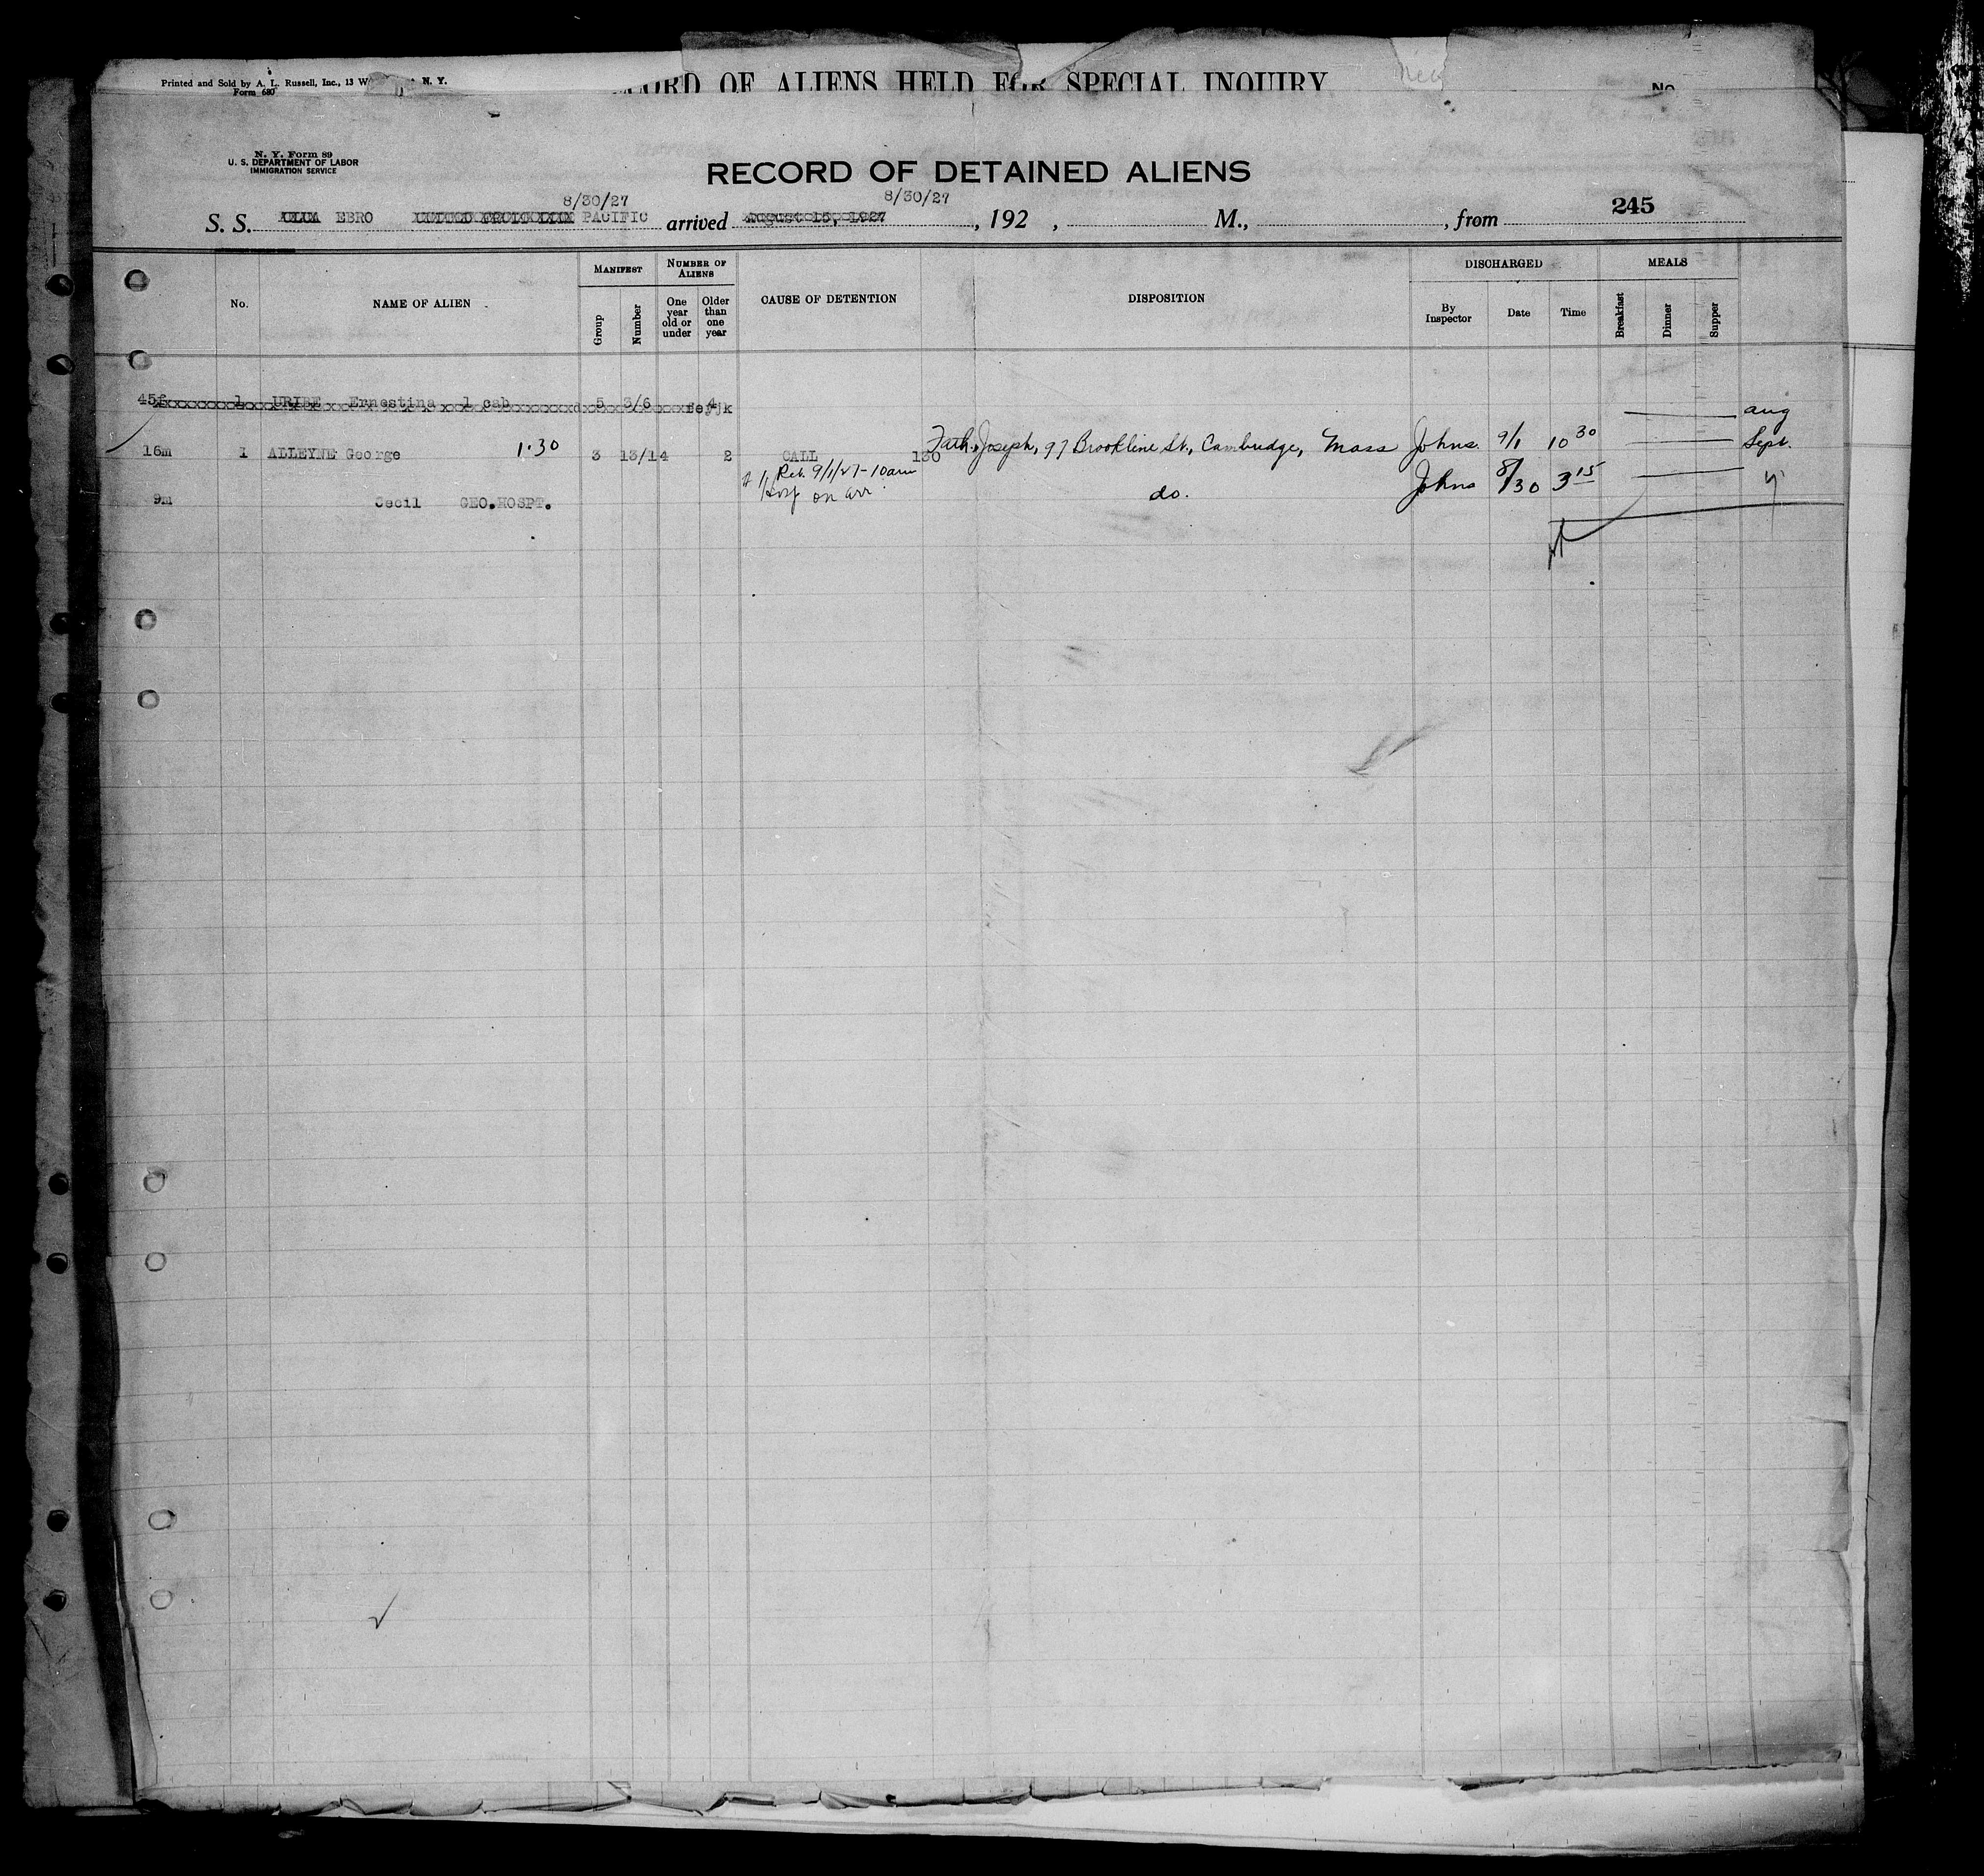 Printed and Sold by A. L. Russell, Inc., 13 W N. Y.
Form 680
ORD OF ALIENS HELD FOR SPECIAL INQUIRY
No
N. Y. Form 89
U. S. DEPARTMENT OF LABOR
IMMIGRATION SERVICE
RECORD OF DETAINED ALIENS
8/30/27 8/30/27
S. S. EBRO PACIFIC arrived August 15, 1927, 192 , M., , from 245
No. NAME OF ALIEN MANIFEST Group Number NUMBER OF ALIENS One year old or under Older than one year CAUSE OF DETENTION DISPOSITION DISCHARGED By Inspector Date Time MEALS Breakfast Dinner Supper
45f 1 URIBE Ernestina 1 cab 5 3/6 4 aug
16m 1 ALLEYNE George 1.30 3 13/14 2 CALL 130 Fath, Joseph, 97 Brookline St., Cambridge, Mass Johns. 9/1 10 30 Sept.
Ret. 9/1/27-10am
9m Cecil GEO.HOSPT. Hosp on arr. do. Johns 8/30 3 15